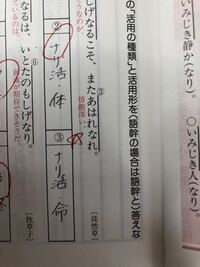 いみじき静か(なり)。 ○いみじき人(なり)。
の「活用の種類」と活用形を(語幹の場合は語幹と)答えな
③
しげなるこそ、またあはれなれ。
情趣深い
[徒然草]
② ナリ活・体 ③ ナリ活 命
⑥
なるは、いとたのもしげなり。
が期待できそうだ。
[枕草子]